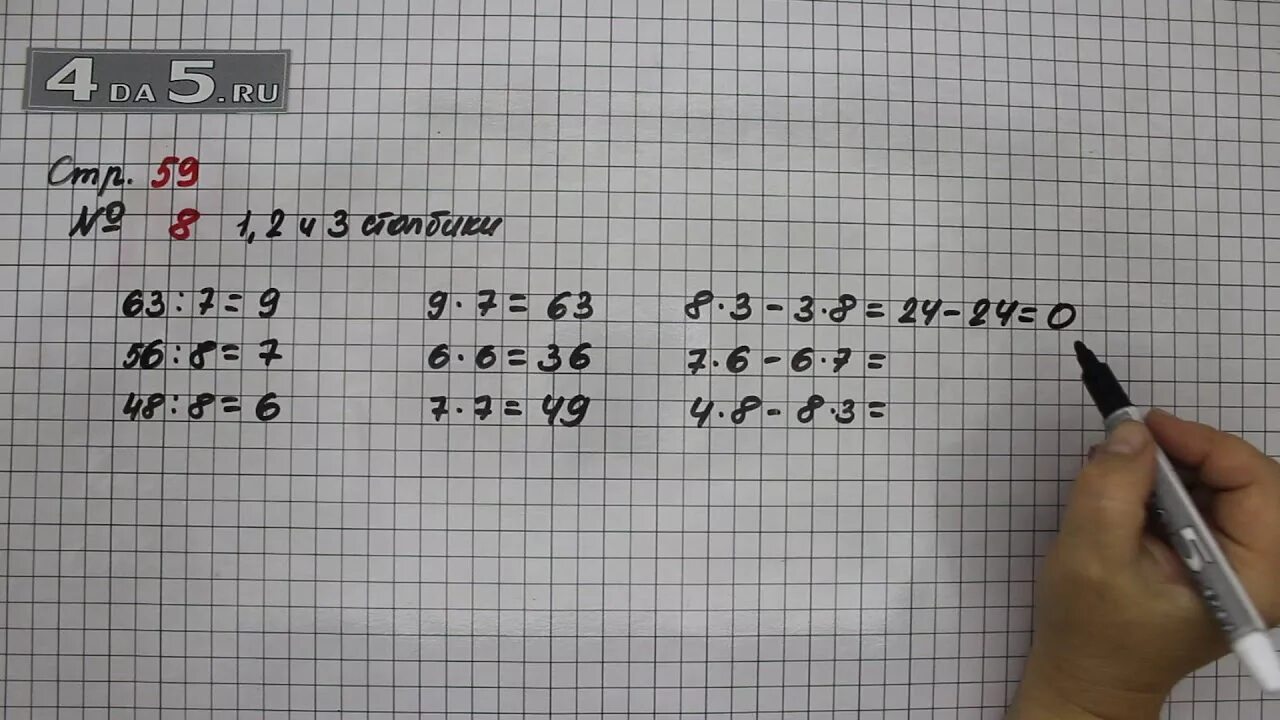 4 DA 5.RU
Стр. 59
№ 8 1, 2 и 3 столбики
63 : 7 = 9 9 · 7 = 63 8 · 3 - 3 · 8 = 24 - 24 = 0
56 : 8 = 7 6 · 6 = 36 7 · 6 - 6 · 7 =
48 : 8 = 6 7 · 7 = 49 4 · 8 - 8 · 3 =